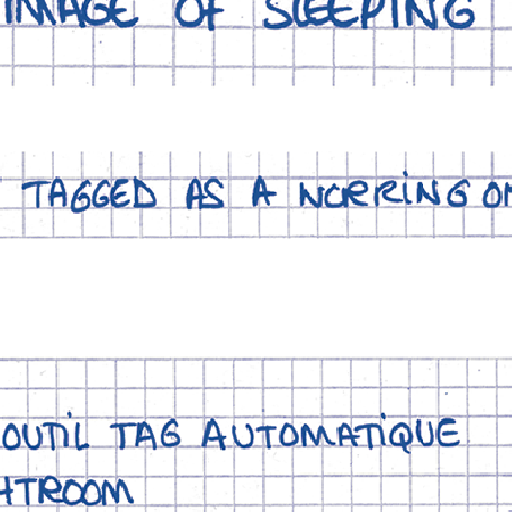 IMAGE OF SLEEPING
TAGGED AS A WORRING
OUTIL TAG AUTOMATIQUE
HTROOM